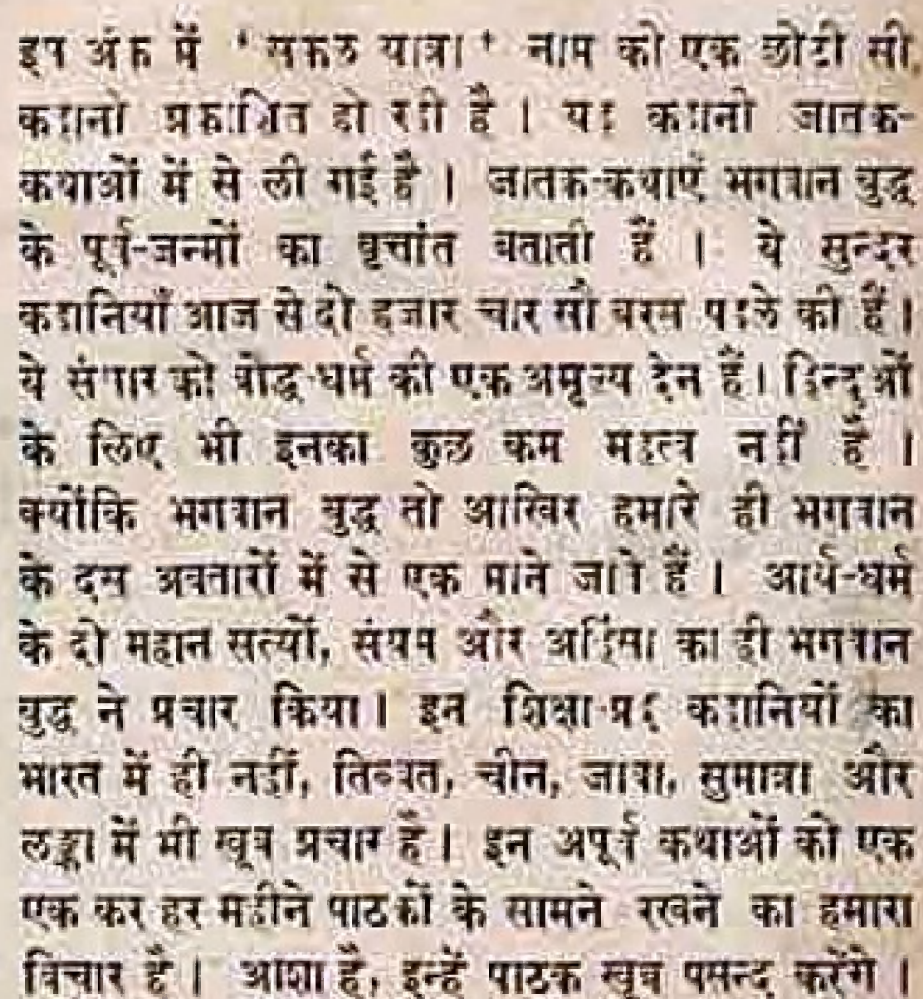 इस अंक में 'सफल यात्रा' नाम की एक छोटी सी
कहानी प्रकाशित हो रही है । यह कहानी जातक-
कथाओं में से ली गई है । जातक-कथाएँ भगवान बुद्ध
के पूर्व-जन्मों का वृत्तांत बताती हैं । ये सुन्दर
कहानियाँ आज से दो हजार चार सौ बरस पहले की हैं ।
ये संसार को बौद्ध-धर्म की एक अमूल्य देन हैं । हिन्दुओं
के लिए भी इनका कुछ कम महत्व नहीं है ।
क्योंकि भगवान बुद्ध तो आखिर हमारे ही भगवान
के दस अवतारों में से एक माने जाते हैं । आर्य-धर्म
के दो महान सत्यों, संयम और अहिंसा का ही भगवान
बुद्ध ने प्रचार किया । इन शिक्षा-प्रद कहानियों का
भारत में ही नहीं, तिब्बत, चीन, जावा, सुमात्रा और
लङ्का में भी खूब प्रचार है । इन अपूर्व कथाओं को एक
एक कर हर महीने पाठकों के सामने रखने का हमारा
विचार है । आशा है, इन्हें पाठक खूब पसन्द करेंगे ।